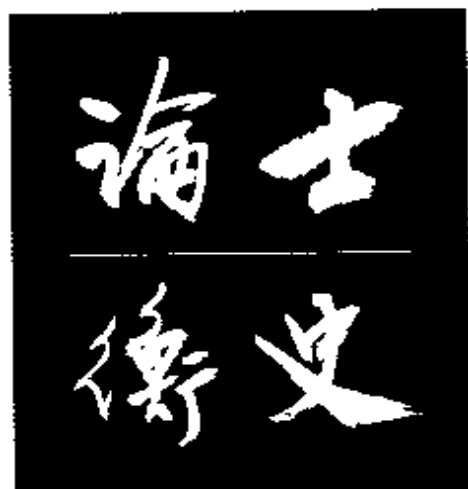 士史
論衡